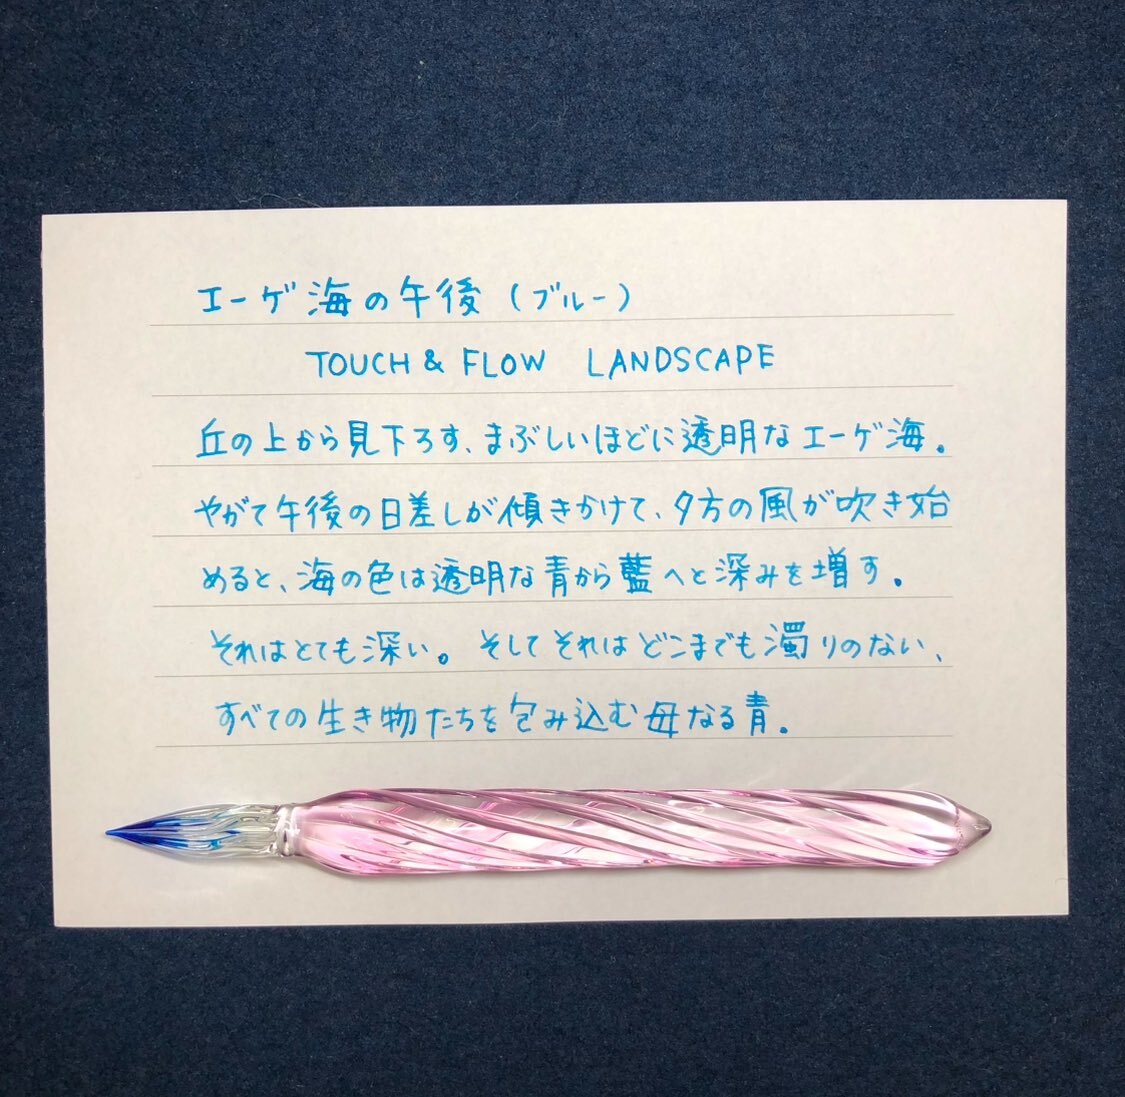 エーゲ海の午後（ブルー）
TOUCH & FLOW LANDSCAPE
丘の上から見下ろす、まぶしいほどに透明なエーゲ海。
やがて午後の日差しが傾きかけて、夕方の風が吹き始
めると、海の色は透明な青から藍へと深みを増す。
それはとても深い。そしてそれはどこまでも濁りのない、
すべての生き物たちを包み込む母なる青。